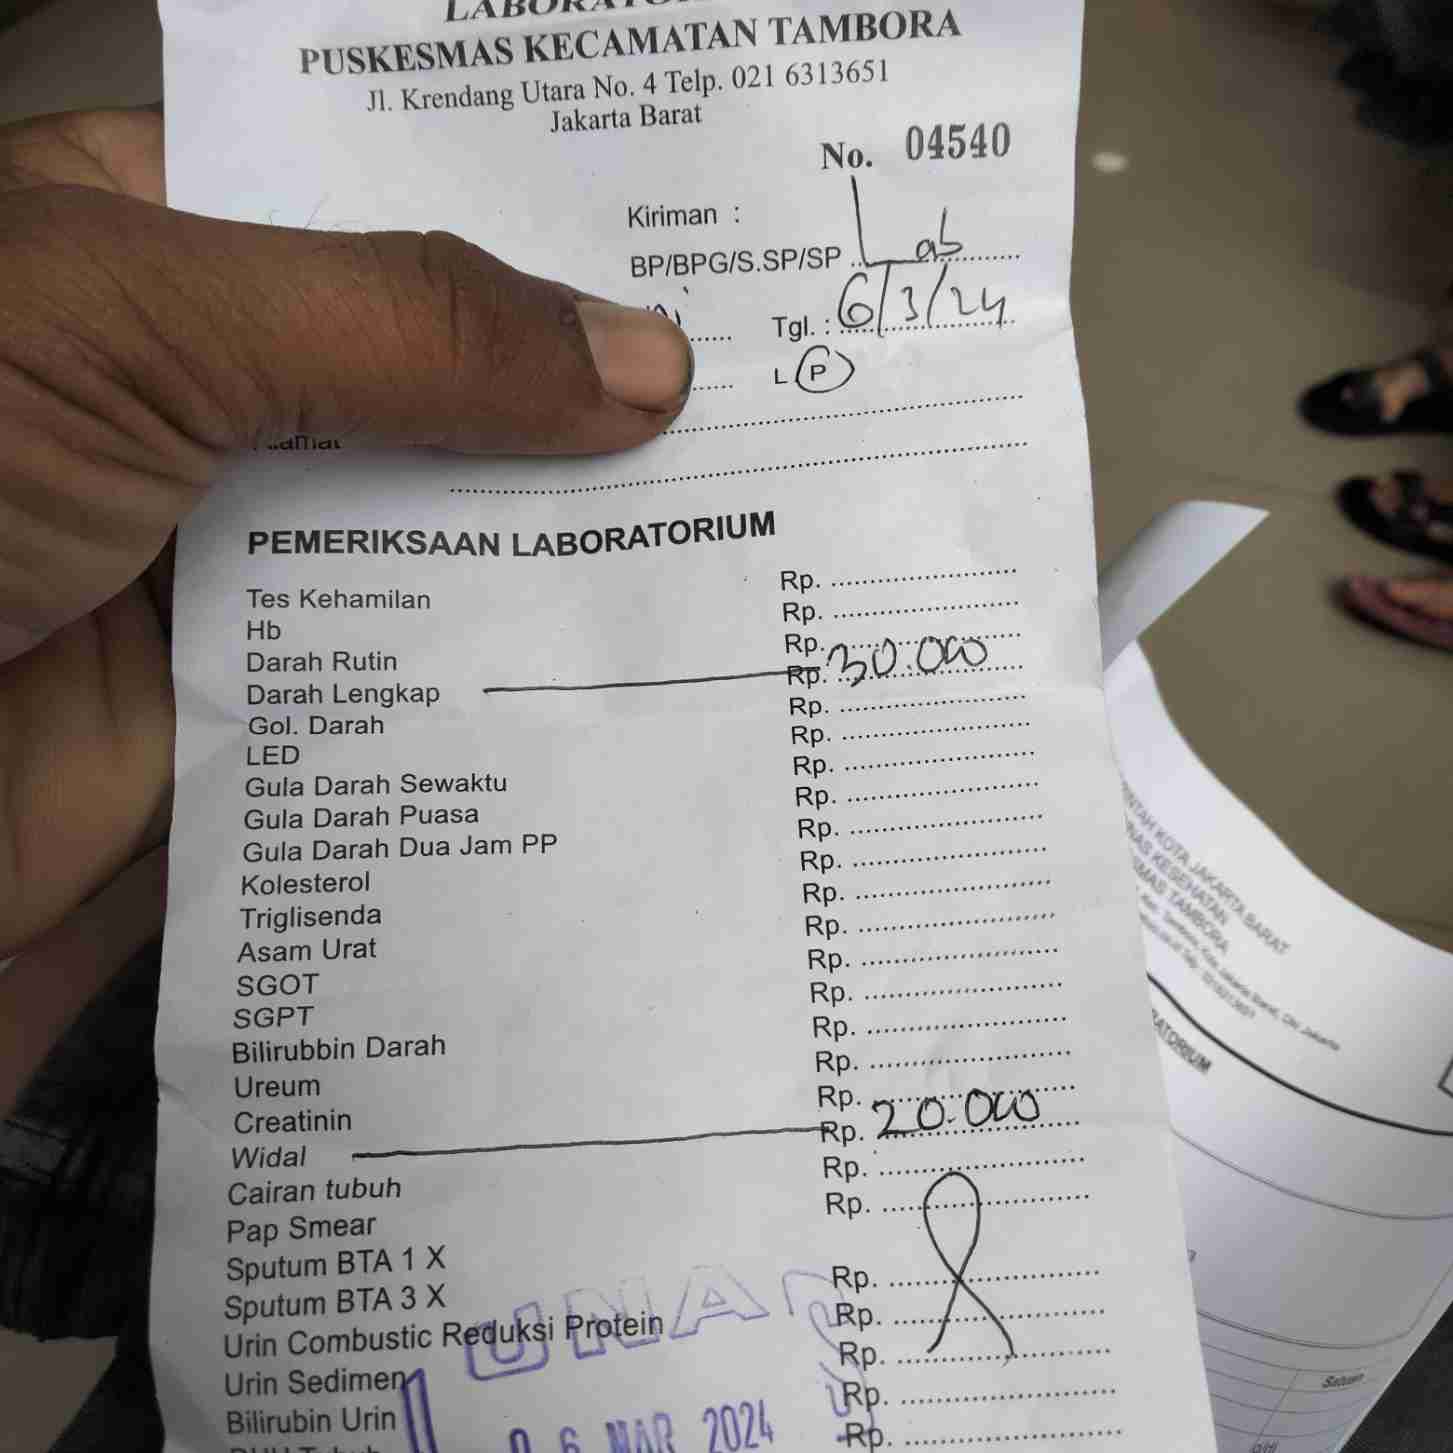 PUSKESMAS KECAMATAN TAMBORA
Jl. Krendang Utara No. 4 Telp. 021 6313651
Jakarta Barat
No. 04540
Kiriman :
BP/BPG/S.SP/SP Lab
Tgl. : 6/3/24
L P
PEMERIKSAAN LABORATORIUM
Tes Kehamilan Rp.
Hb Rp.
Darah Rutin Rp.
Darah Lengkap Rp. 30.000
Gol. Darah Rp.
LED Rp.
Gula Darah Sewaktu Rp.
Gula Darah Puasa Rp.
Gula Darah Dua Jam PP Rp.
Kolesterol Rp.
Triglisenda Rp.
Asam Urat Rp.
SGOT Rp.
SGPT Rp.
Bilirubbin Darah Rp.
Ureum Rp.
Creatinin Rp.
Widal Rp. 20.000
Cairan tubuh Rp.
Pap Smear Rp.
Sputum BTA 1 X Rp.
Sputum BTA 3 X Rp.
Urin Combustic Reduksi Protein Rp.
Urin Sedimen Rp.
Bilirubin Urin Rp.
LUNAS
06 MAR 2024
KOTA JAKARTA BARAT
KESEHATAN
TAMBORA
Satuan